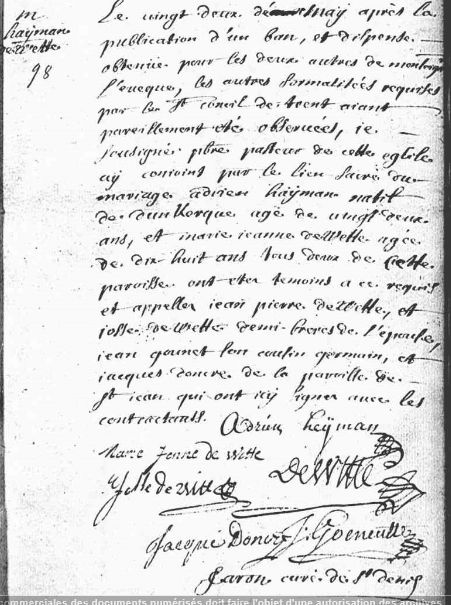 m
häyman
deWette
98
Le vingt deux de may après la
publication d'un ban, et dispense
obtenüe pour les deux autres de
l'eveque, les autres formalitées requises
par le St concil de trent aiant
pareillement eté observées, je
soussigné pbre pasteur de cette eglise
ay conjoint par le lien sacré du
mariage adrien häyman natif
de dunkerque agé de vingt deux
ans, et marie jeanne deWette agée
de dix huit ans tous deux de cette
paroisse ont eter temoins a ce requis
et appeller jean pierre deWette, et
josse deWette demi freres de l'epouse,
jean gounet son cousin germain, et
jacques doncre de la paroisse de
St jean qui ont icy signer avec les
contractants. Adrien heÿman
Marie Jenne de Witte
Josse de Witte DeWitte
Jacque Doncre J: Goeneutte
Faron curé de St denis
commerciales des documents numérisés doit faire l'objet d'une autorisation des archives